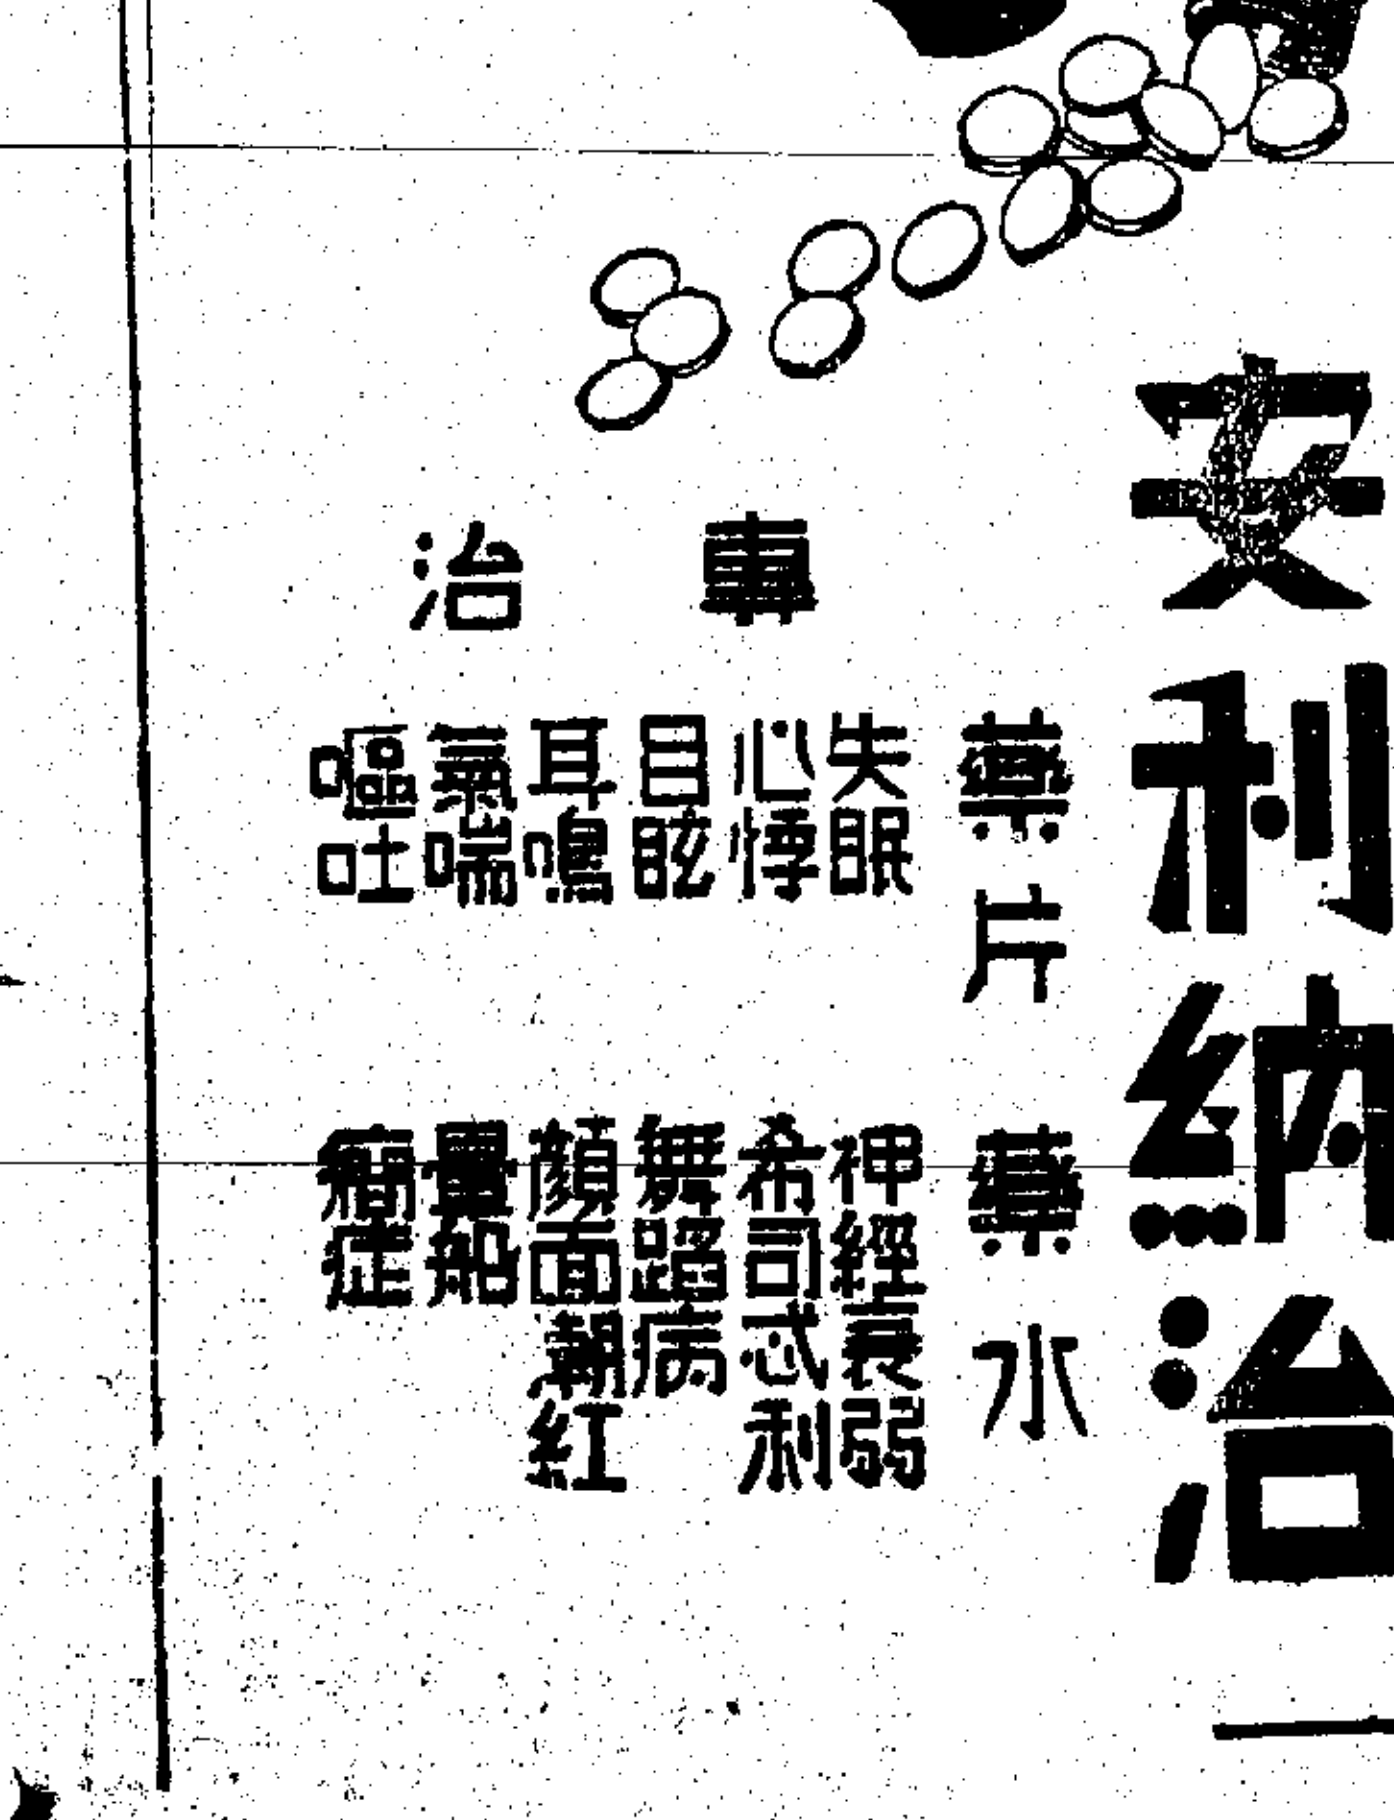 安利納治
藥片
藥水
專治
失眠
心悸
目眩
耳鳴
氣喘
嘔吐
神經衰弱
希司忒利
舞蹈病
顏面潮紅
暈船
癇症